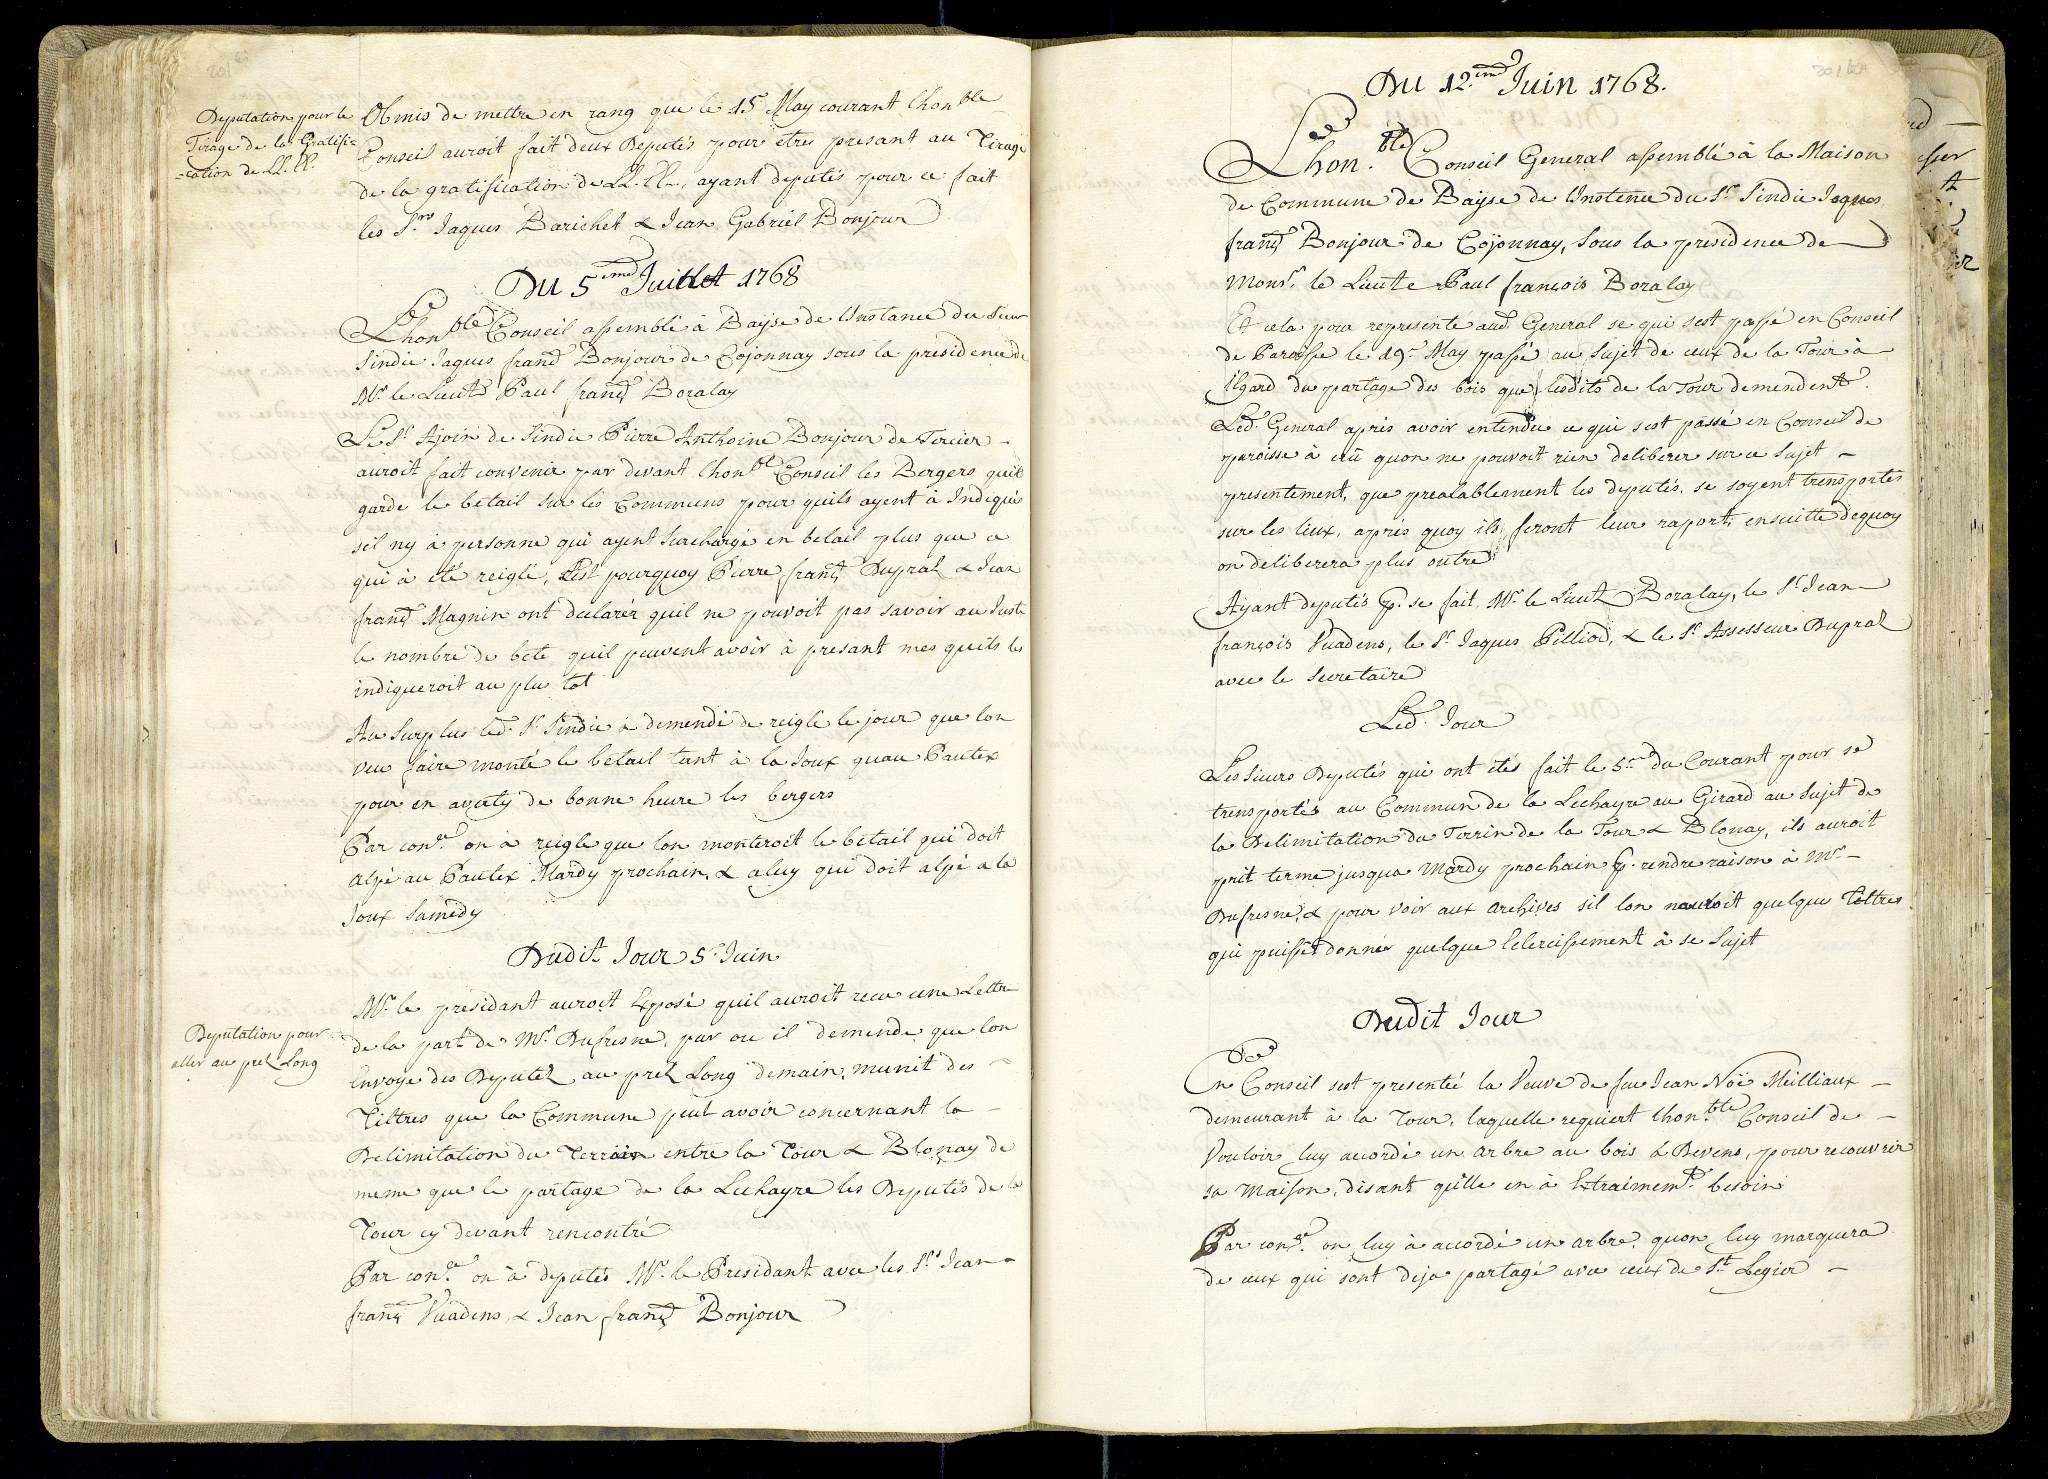 Deputation pour le
Tirage de la Gratifi=
=cation de LL.EE.
Obmis de mettre en rang que le 15e May courant Lhonble
Conseil auroit fait deux Deputés pour etres presant au Tirage
de la gratification de LL.EE., ayant deputés pour ce fait
les Srs Jaques Barichet & Jean Gabriel Bonjour
Du 5eme Juillet 1768
Lhonble Conseil assemblé à Bayse de Linstance du Sieur
Sindic Jaques franç Bonjour de Cojonnay sous la présidence de
Mr. le Lieut Paul franç Boralay
Le Sr Ajoin de Sindic Pierre Anthoine Bonjour de Tercier -
auroit fait convenir par devant lhonble Conseil les Bergers quils
garde le betail sur les Communs pour quils ayent à Indiqué
sil ny à personne qui ayent Surchargé en betail plus que ce
qui à été reiglé, Cest pourquoy Pierre franç Dupral & Jean
franç Magnin ont declarér quil ne pouvoit pas savoir au Juste
le nombre de bete quil peuvent avoir à presant mes quils les
indiqueroit au plus tot
Au Surplus led. Sr Sindic à demendé de reiglé le jour que lon
veu faire monté le betail tant à la Joux quau Pautex
pour en averty de bonne heure les bergers
Par conre on à reigle que lon monteroit le betail qui doit
alpé au Pautex Mardy prochain, & celuy qui doit alpé a la
Joux Samedy
Dudit Jour 5e Juin
Deputation pour
aller au prez Long
Mr. le presidant auroit Exposé quil auroit receu une Lettre
de la part de Mr. Dufresne, par ou il demende que lon
Envoye des Deputez au prez Long demain, munit des -
Tiltres que la Commune peut avoir concernant la -
Delimitation du Terrain entre la Tour & Blonay de
meme que le partage de la Lechayre les Deputés de la
Tour cy devant rencontré
Par conre on à deputés Mr. le Presidant avec les Srs Jean -
franç Vuadens, & Jean franç Bonjour
Du 12eme Juin 1768.
Lhon.ble Conseil General assemblé à la Maison
de Commune de Bayse de Linstence du Sr Sindic Jaques
franç Bonjour de Cojonnay, Sous la presidence de
Monsr. le Lieute Paul françois Boralay
Et cela pour represente aud. General se qui sest passé en Conseil
de Paroisse le 19e May passé au Sujet de ceux de la Tour à -
Légard du partage des bois que lesdits de la Tour demendent.
Led. General après avoir entendu ce qui sest passé en Conseil de
paroisse à cru quon ne pouvoit rien deliberer sur ce Sujet -
presentement, que prealablement les deputés, se soyent trensportés
sur les lieux, après quoy ils feront leur raport, ensuitte dequoy
on deliberera plus outre
Ayant deputés p. se fait, Mr. le Lieut Boralay, le Sr Jean -
françois Vuadens, le Sr Jaques Pilliod, & le Sr Assesseur Dupral
avec le Secretaire
Led. Jour
Les Sieurs Deputés qui ont étés fait le 5e du Courant pour se
trensportér au Commun de la Lechayre au Girard au Sujet de
la Delimitation du Terrin de la Tour & Blonay, ils auroit
prit terme jusqua Mardy prochain p. rendre raison à Mr. -
Dufresne, & pour voir aux archives sil lon nauroit quelque Tiltres
qui puisset donner quelque Eclercissement à se Sujet
Dudit Jour
En Conseil sest presentée la Veuve de feu Jean Noé Meilliaux -
demeurant à la Tour, laquelle requiert lhonble Conseil de -
Vouloir luy accordé un arbre au bois & Devens, pour recouvrir
sa Maison, disant qu'elle en à Extraimemt. besoin
Par conre. on luy à accordé un arbre, quon luy marquera
de ceux qui sont deja partagé avec ceux de St Legier -